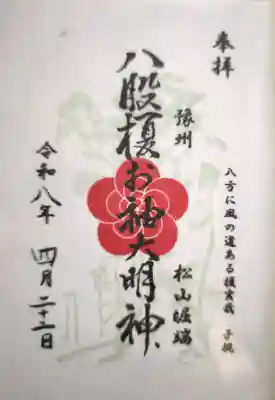 奉拝
八方に風の道ある榎実哉 子規
豫州
松山堀端
八股榎お袖大明神
令和八年 四月二十二日